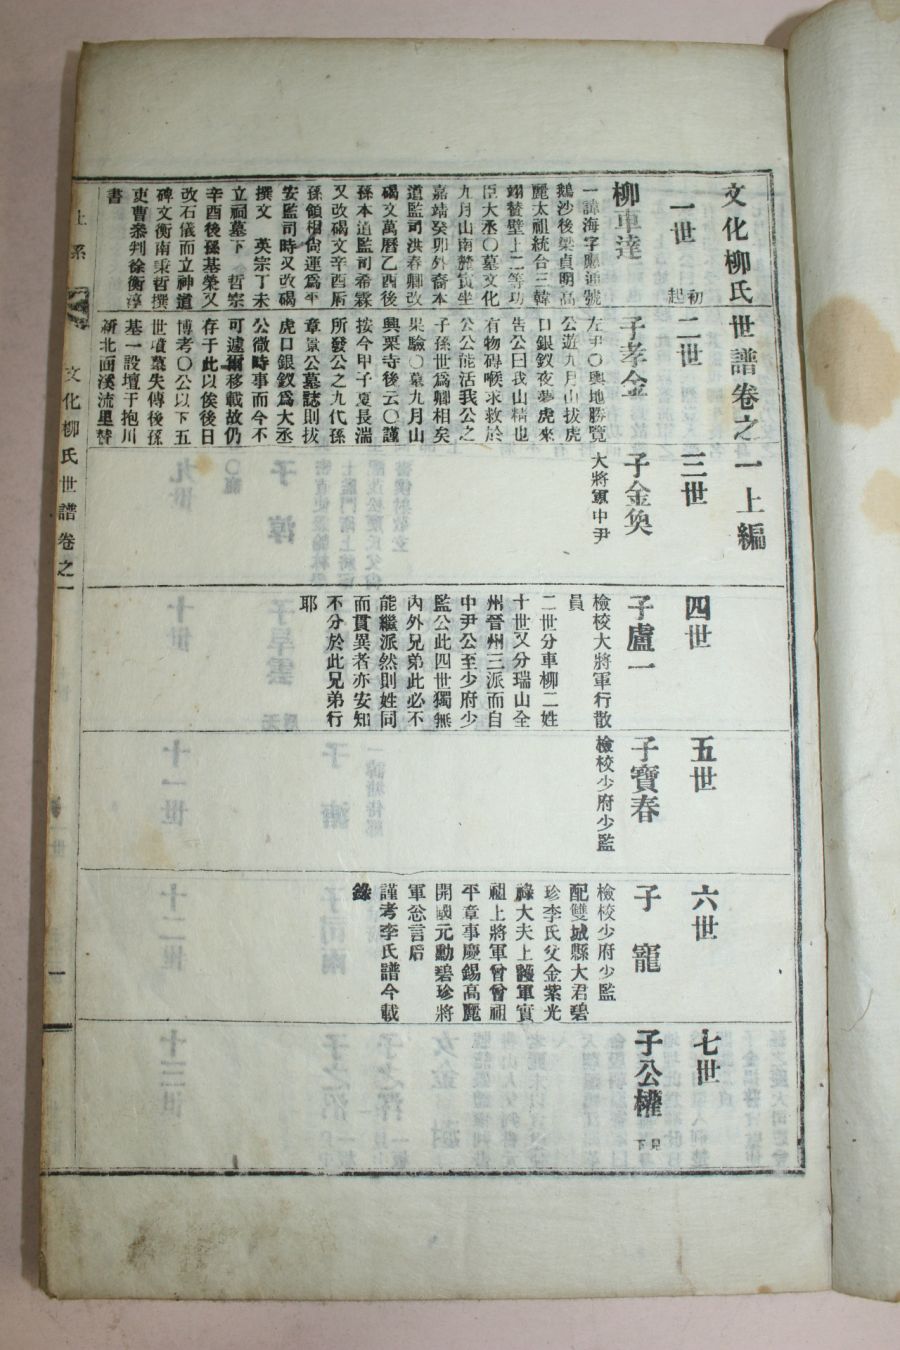 文化柳氏世譜卷之一上編
一世 初起
柳車達
一諱海字應通號
鵝沙後梁貞明高
麗太祖統合三韓
翊贊壁上二等功
臣大丞〇墓文化
九月山南麓寅坐
嘉靖癸卯外裔本
道監司洪春卿改
碣文萬曆乙酉後
孫本道監司希霖
又改碣文辛酉后
孫領相尙運爲平
安監司時又改碣
撰文 英宗丁未
立祠墓下 哲宗
辛酉後孫基榮又
改石儀而立神道
碑文衡南秉哲撰
吏曹參判徐衡淳
書
二世
子孝金
左尹〇輿地勝覽
公遊九月山拔虎
口銀釵夜夢虎來
告公曰我山精也
有物碍喉求救於
公公能活我公之
子孫世爲卿相矣
果驗〇墓九月山
興栗寺後云〇謹
按今甲子夏長湍
所發公之九代孫
章景公墓誌則拔
虎口銀釵爲大丞
公微時事而今不
可遽爾移載故仍
存于此以俟後日
博考〇公以下五
世墳墓失傳後孫
基一設壇于抱川
新北面溪流里替
三世
子金奐
大將軍中尹
四世
子盧一
檢校大將軍行散
員
二世分車柳二姓
十世又分瑞山全
州晉州三派而自
中尹公至少府少
監公此四世獨無
內外兄弟此必不
能繼派然則姓同
而貫異者亦安知
不分於此兄弟行
耶
五世
子寶春
檢校少府少監
六世
子寵
檢校少府少監
配雙城縣大君碧
珍李氏父金紫光
祿大夫上護軍實
祖上將軍曾曾祖
平章事慶錫高麗
開國元勳碧珍將
軍忩言后
謹考李氏譜今載
錄
七世
子公權 見下
世系
文化柳氏世譜卷之一
一